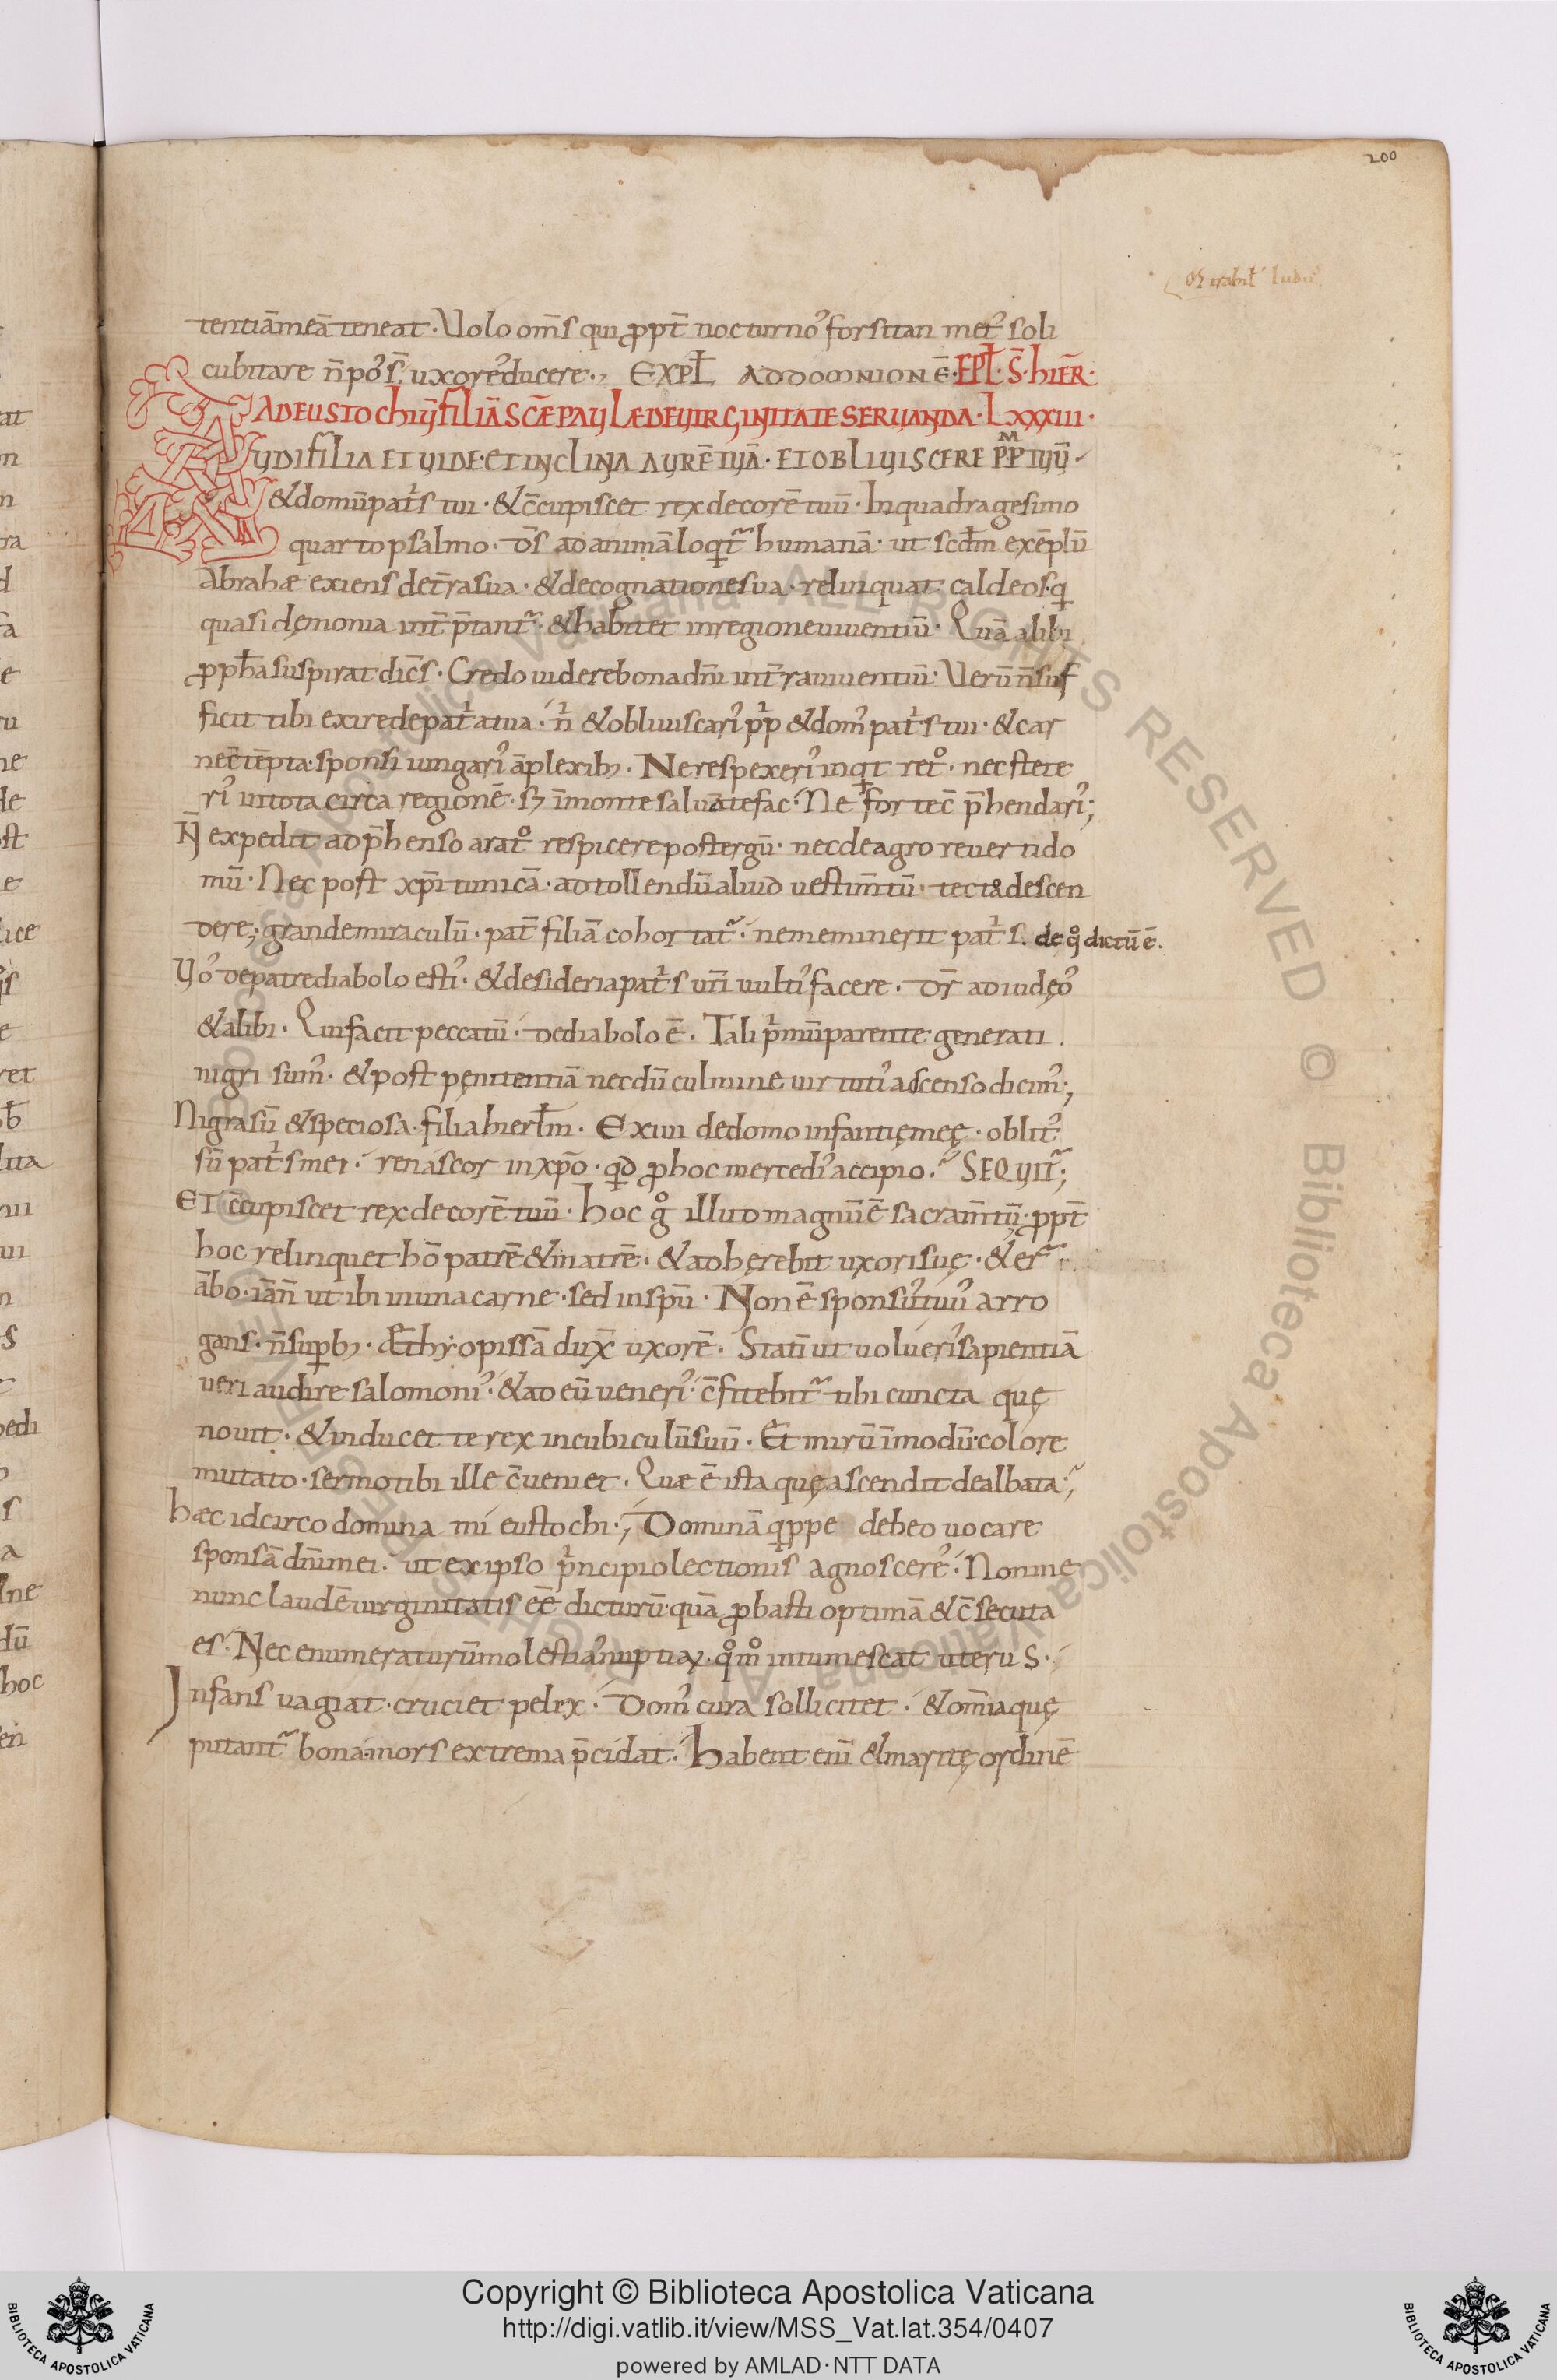 200
tentiā meā teneat. Uolo om̄s qui ꝓpt̄ nocturnoˀ forsitan metˀ soli
cubitare n̄ poss̄ uxoreˀ ducere. EXPL̄ AD DOMNIONĒ. EPL̄. S̄. HIER̄.
AD EUSTOCHIŪ FILIĀ SC̄Æ PAULÆ DE UIRGINITATE SERUANDA. LXXXIII.
AUDI FILIA ET UIDE. ET INCLINA AURĒ TUĀ. ET OBLIUISCERE PP̄M TUŪ.
& domū patͥs tui. & c̄cupiscet rex decorē tuū. In quadragesimo
quarto psalmo. d̄s ad animā loqͥtᷣ humanā. ut scd̄m exēplū
abrahæ exiens de t̄ra sua. & de cognatione sua. relinquat caldeos. qͥ
quasi dęmonia int̄p̄tantᷣ. & habitet in regione uiuentiū. Quā alibi
ꝓph̄a suspirat dic̄s. Credo uidere bona dn̄i in t̄ra uiuentiū. Uerū n̄ suf
ficit tibi exire de patͥa tua. nͥ & obliuiscariˀ pͥp & domˀ patͥs tui. & car
ne c̄tēpta. sponsi iungariˀ āplexib;. Ne respexeriˀ inqͥt ret°. nec stete
riˀ in tota circa regionē. s; ī monte saluū te fac. Ne forte c̄p̄hendariˀ;
N̄ expedit adp̄henso arat° respicere postergū. nec de agro reuerti do
mū. Nec post xp̄i tunicā. ad tollendū aliud uestim̄tū. tecta descen
dere; grande miraculū. pat̄ filiā cohortatᷣ. ne meminerit patͥs. de q° dictū ē.
Uoˀ de patre diabolo estiˀ. & desideria patͥs ur̄i uultiˀ facere. dr̄ ad iudęoˀ
& alibi. Qui facit peccatū. de diabolo ē. Tali pͥmū parente generati
nigri sumˀ. & post pęnitentiā necdū culmine uirtutiˀ ascenso dicimˀ;
Nigra sū & speciosa. filia hierl̄m. Exiui de domo infantię meę. oblitˀ
sū patͥs mei. renascor in xp̄o. qͥd ꝓ hoc mercediˀ accipio. SEQUITᷣ;
ET c̄cupiscet rex decorē tuū. hoc g° illud magnū ē sacram̄tū. ꝓpt̄
hoc relinquet hō patrē & matrē. & adhęrebit uxori suę. & erᷣ
ābo. iā n̄ ut ibi in una carne. sed in sp̄u. Non ē sponsuˀ tuuˀ arro
gans. n̄ supb;. Æthyopissā dux̄ uxorē. Stati ut uolueriˀ sapientiā
ueri audire salomoniˀ. & ad eū ueneriˀ. c̄fitebitᷣ tibi cuncta quę
nouit. & inducet te rex in cubiculū suū. Et mirū ī modū. colore
mutato. sermo tibi ille c̄ueniet. Quæ ē ista quę ascendit dealbata;
hæc idcirco domina mi eustochi; Dominā qͥppe debeo uocare
sponsā dn̄i mei. ut ex ipso pͥncipio lectionis agnoscereˀ. Non me
nunc laudē uirginitatis eē dicturū. quā ꝓbasti optimā & c̄secuta
es. Nec enumeraturū molestiaˀ nuptiaꝝ. q°m° intumescat uterus.
Infans uagiat. cruciet pelex. domˀ cura sollicitet. & om̄ia quę
putantᷣ bona. mors extrema p̄cidat. habent enī & maritę ordinē
Copyright © Biblioteca Apostolica Vaticana
http://digi.vatlib.it/view/MSS_Vat.lat.354/0407
powered by AMLAD·NTT DATA
BIBLIOTECA APOSTOLICA VATICANA
BIBLIOTECA APOSTOLICA VATICANA